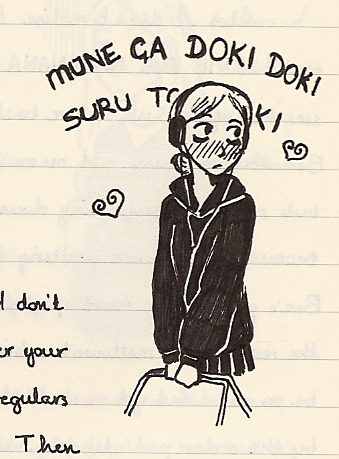 MUNE GA DOKI DOKI
SURU TO KI
don't
your
regulars
Then